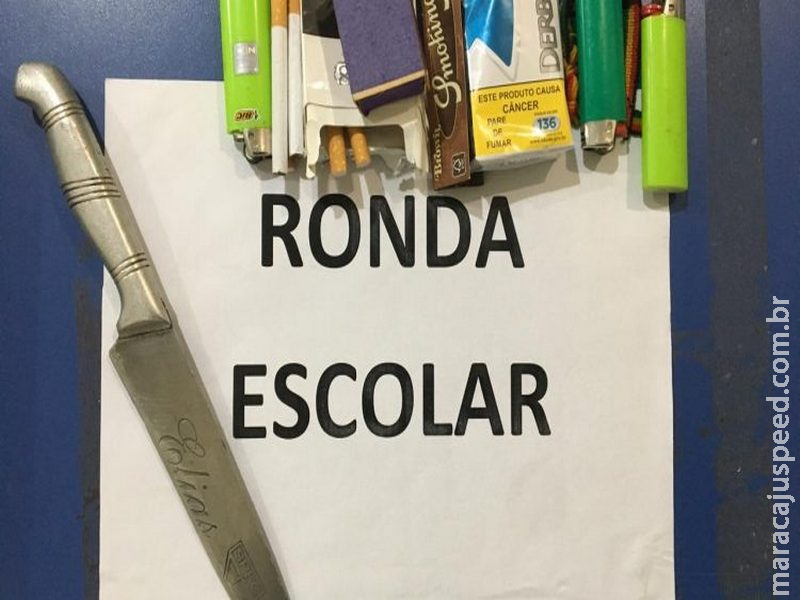 BIC
Smoking
Brown
DERB
ESTE PRODUTO CAUSA
CÂNCER
PARE
DE
FUMAR
136
RONDA
ESCOLAR
Elias
maracajuspeed.com.br